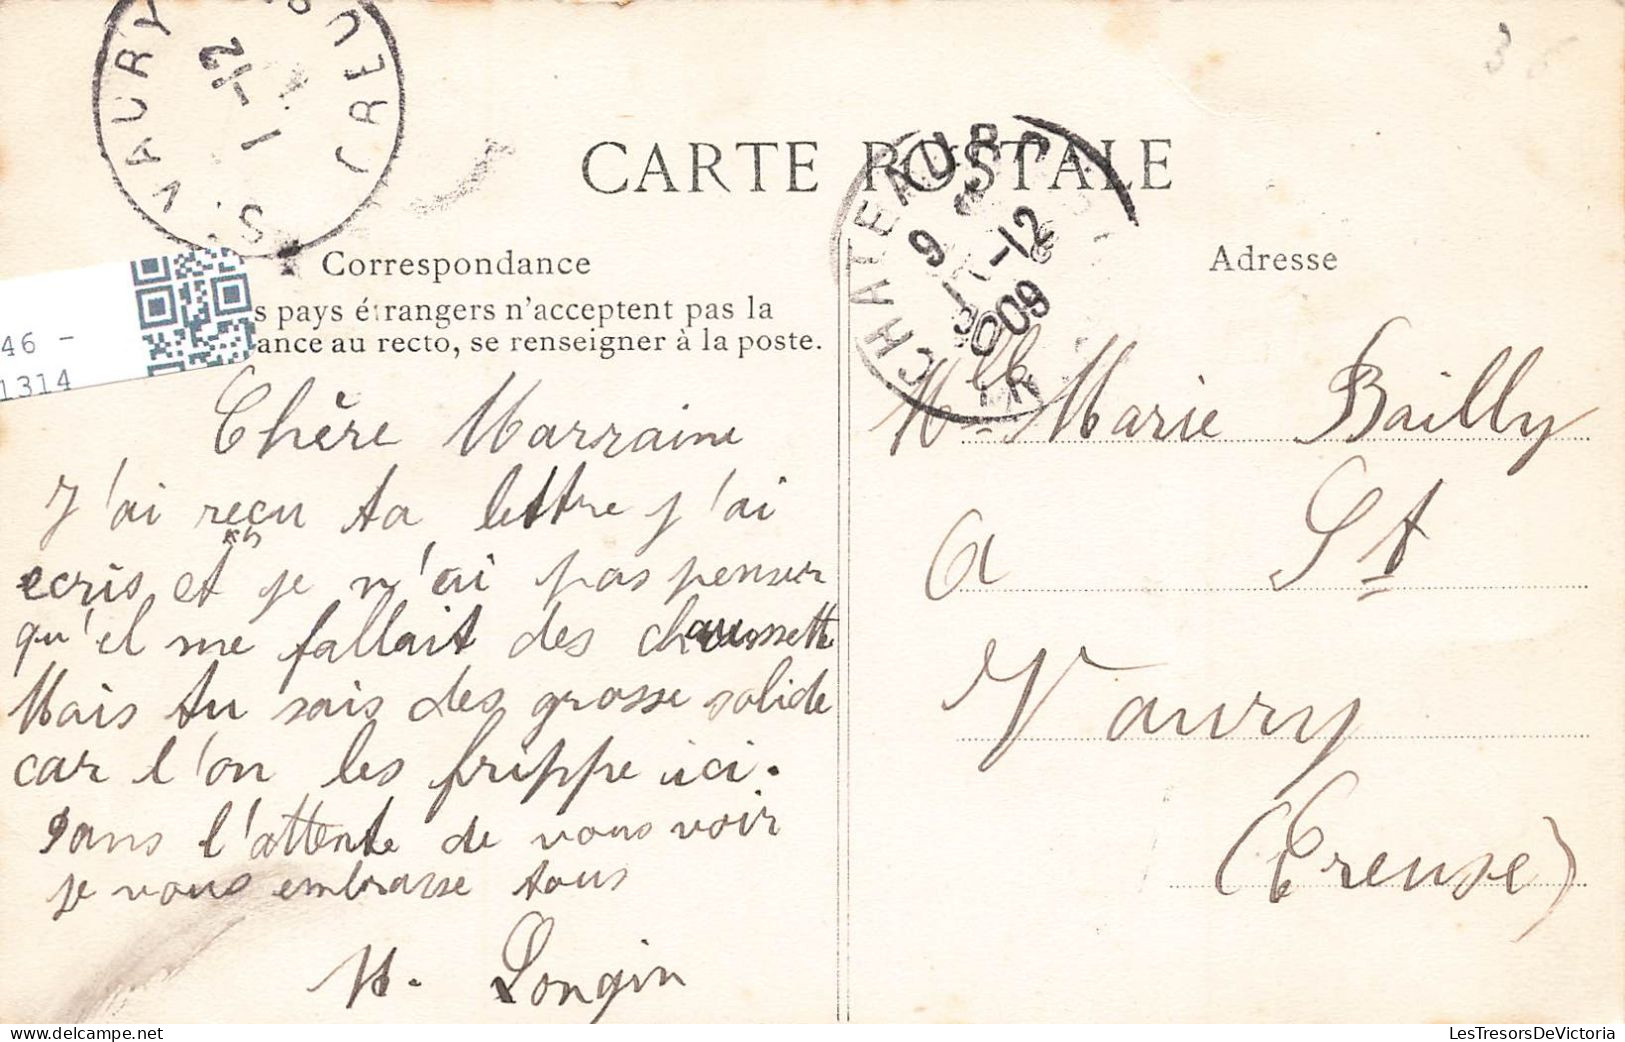 S. VAURY (CREU
1 -12
36
CARTE POSTALE
CHATEAUR
9
1 -12
09
Correspondance
Adresse
s pays étrangers n'acceptent pas la
ance au recto, se renseigner à la poste.
46 -
1314
Chère Marraine
J'ai reçu ta lettre j'ai
ecris et je n'ai pas penser
qu'el me fallait des chaussette
Mais tu sais des grosse solide
car l'on les frippe ici.
Dans l'attente de vous voir
je vous embrasse tous
M. Longin
Mlle Marie Bailly
a St
Vaury
(Creuse)
LesTresorsDeVictoria